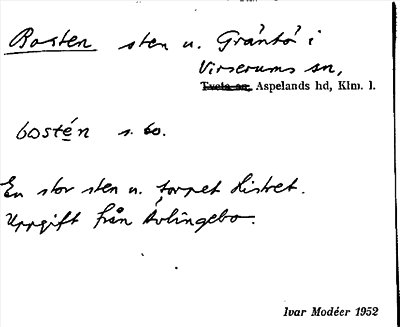 Bosten sten n. Gräntö i
Virserums sn,
Tveta sn, Aspelands hd, Klm. l.
bostén s. bo.
En stor sten n. torpet Listret.
Uppgift från Kvlingebo.
Ivar Modéer 1952